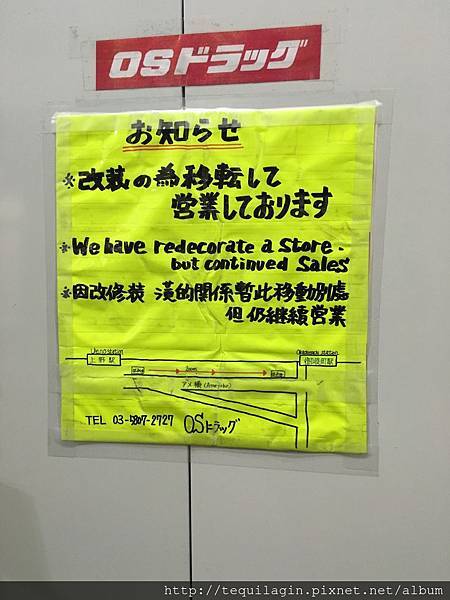 OSドラッグ
お知らせ
※改装の為移転して
営業しております
※We have redecorate a Store.
but continued Sales
※因改修装 漢的關係暫此移動別處
但仍継續営業
Ueno station
上野駅
Okachimachi station
御徒町駅
アメ横 (Ameyoko)
TEL 03-5807-2727 OSドラッグ
http://tequilagin.pixnet.net/album